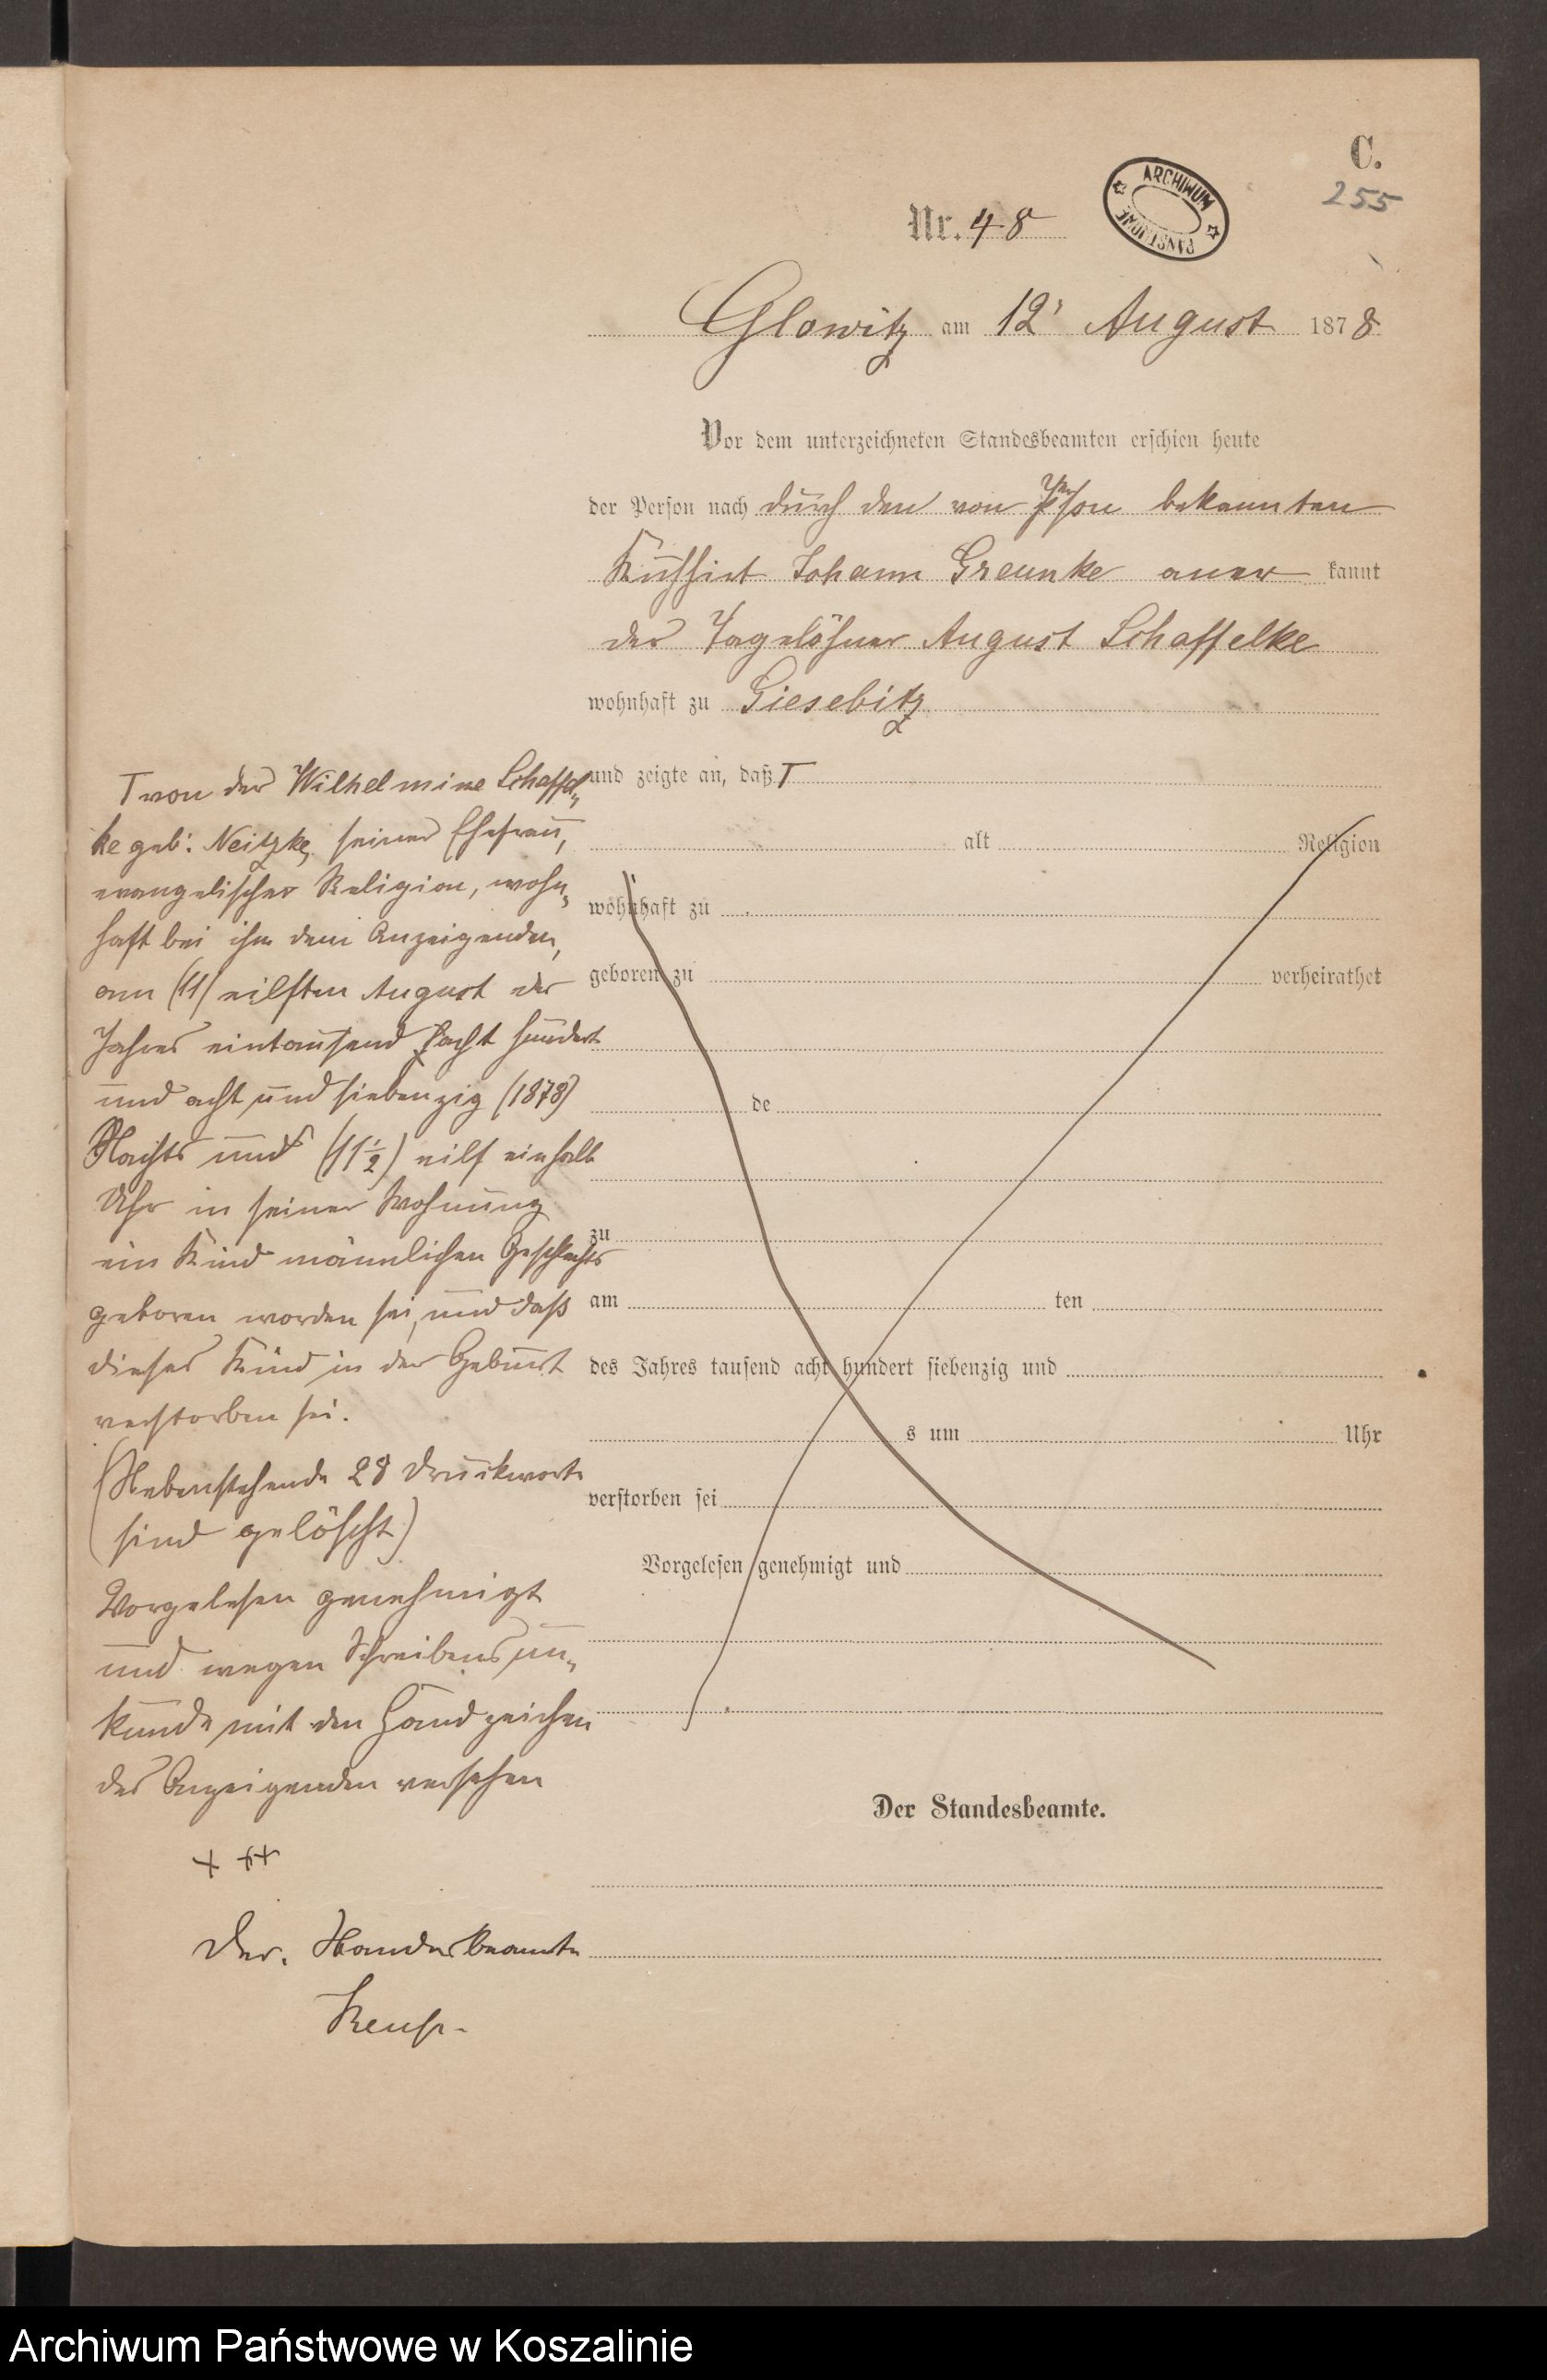 C.
255
ARCHIWUM PAŃSTWOWE
Nr. 48
Glowitz am 12' August 1878
Vor dem unterzeichneten Standesbeamten erschien heute
der Person nach durch den von Person bekannten
Kuhhirt Johann Greunke aner kannt
der Tagelöhner August Schaffelke
wohnhaft zu Giesebitz
und zeigte an, daß T
T von der Wilhelmine Schaffel„
ke geb: Neitzke, seiner Ehefrau,
evangelischer Religion, wohn„
haft bei ihm dem Anzeigenden,
am (11) eilften August des
Jahres eintausend acht hundert
und acht und siebenzig (1878)
Nachts um (11½) eilf einhalb
Uhr in seiner Wohnung
ein Kind männlichen Geschlechts
geboren worden sei, und daß
dieses Kind in der Geburt
verstorben sei.
(Nebenstehende 28 Druckworte
sind gelöscht)
Vorgelesen genehmigt
und wegen Schreibens un„
kunde mit den Handzeichen
des Anzeigenden versehen
+ ++
Der Standesbeamte
alt Religion
wohnhaft zu
geboren zu verheirathet
de
zu
am ten
des Jahres tausend acht hundert siebenzig und
s um Uhr
verstorben sei
Vorgelesen genehmigt und
Der Standesbeamte.
Archiwum Państwowe w Koszalinie